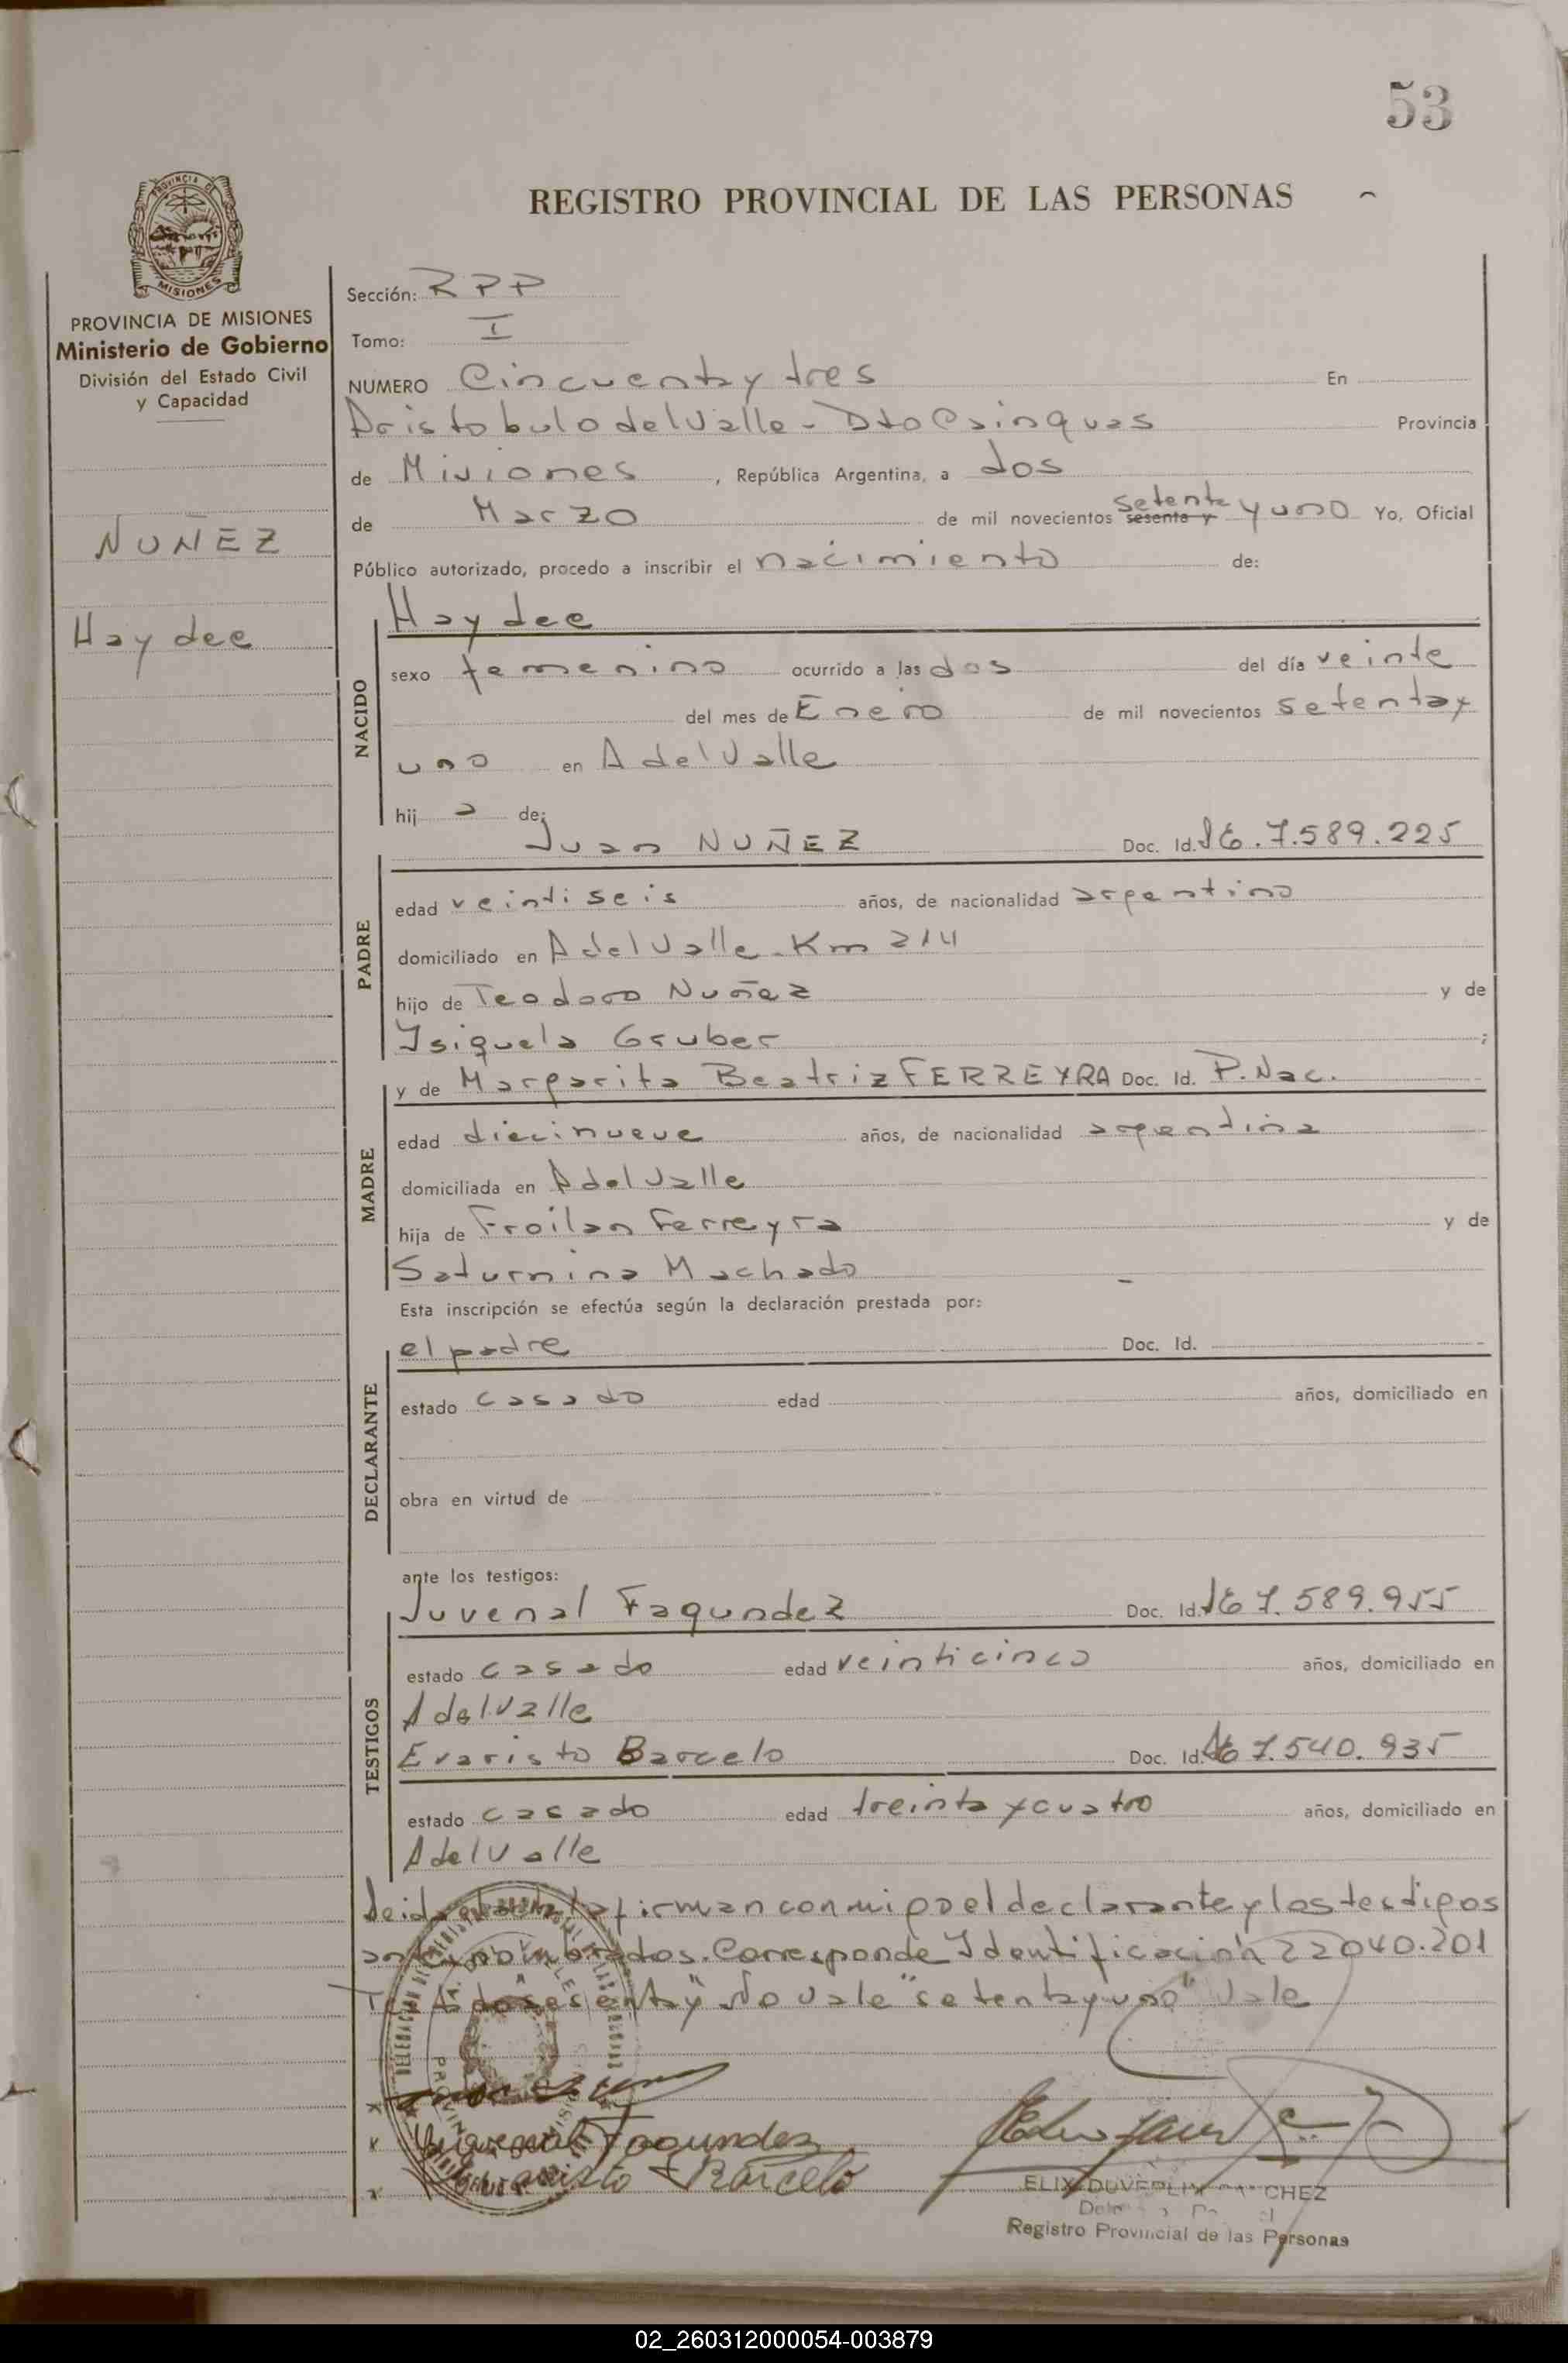 53
REGISTRO PROVINCIAL DE LAS PERSONAS
PROVINCIA DE
MISIONES
PROVINCIA DE MISIONES
Ministerio de Gobierno
División del Estado Civil
y Capacidad
NUÑEZ
Haydee
Sección: RPP
Tomo: I
NUMERO Cincuenta y tres En
Aristobulo del Valle - Dto Cainguas Provincia
de Misiones, República Argentina, a dos
de Marzo de mil novecientos sesenta y setenta y uno Yo, Oficial
Público autorizado, procedo a inscribir el nacimiento de:
NACIDO
Haydee
sexo femenino ocurrido a las dos del día veinte
del mes de Enero de mil novecientos setenta y
uno en A del Valle
hij a de:
PADRE
Juan NUÑEZ Doc. Id. 7.589.225
edad veintiseis años, de nacionalidad argentino
domiciliado en A del Valle - Km 214
hijo de Teodoro Nuñez y de
Ysiquela Gruber ;
MADRE
y de Margarita Beatriz FERREYRA Doc. Id. P. Nac.
edad diecinueve años, de nacionalidad argentina
domiciliada en A del Valle
hija de Froilan Ferreyra y de
Saturnina Machado
Esta inscripción se efectúa según la declaración prestada por:
DECLARANTE
el padre Doc. Id.
estado casado edad años, domiciliado en
obra en virtud de
ante los testigos:
TESTIGOS
Juvenal Fagundez Doc. Id. 7.589.955
estado casado edad veinticinco años, domiciliado en
A del Valle
Evaristo Barcelo Doc. Id. 7.540.935
estado casado edad treinta y cuatro años, domiciliado en
A del Valle
Leida el acta la firman conmigo el declarante y los testigos
antes nombrados. Corresponde Identificación 22040.201
"sesenta y" No vale "setenta y uno" Vale
Juvenal Fagundez
Evaristo Barcelo
CHEZ
Registro Provincial de las Personas
02_260312000054-003879